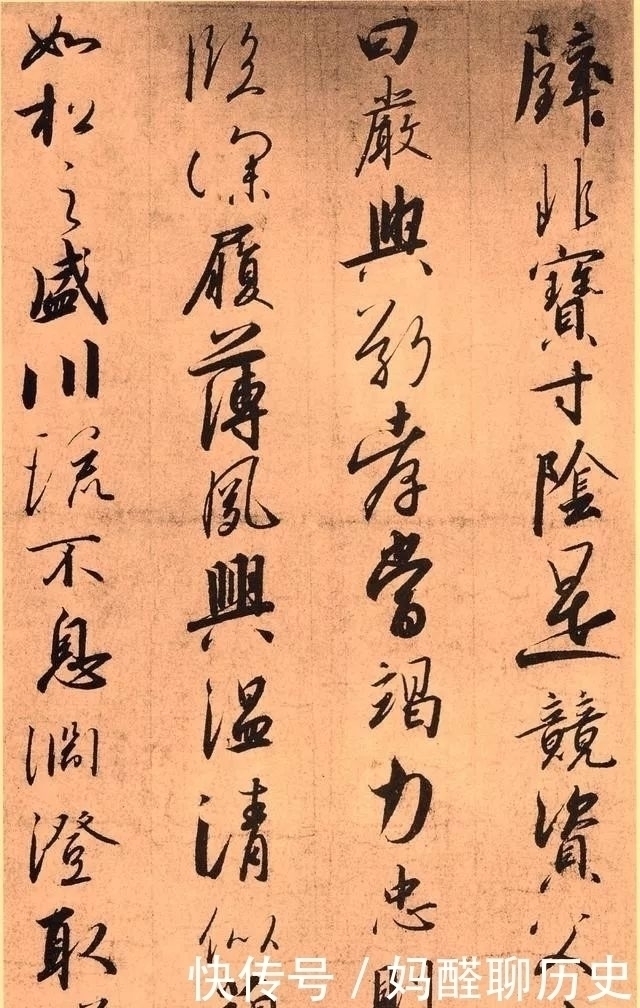 璧非寶寸陰是競資父
曰嚴與敬孝當竭力忠則
臨深履薄夙興温清似
如松之盛川流不息淵澄取
快传号 / 妈醛聊历史